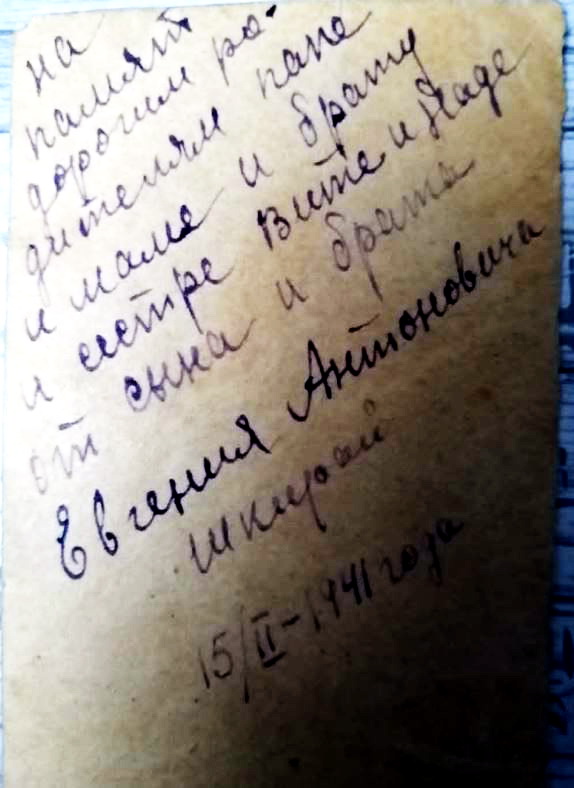 на
памят
дорогим ро-
дителям папе
и маме и брату
и сестре Вите и Наде
от сына и брата
Евгения Антоновича
Шкирай
15/II-1941 года